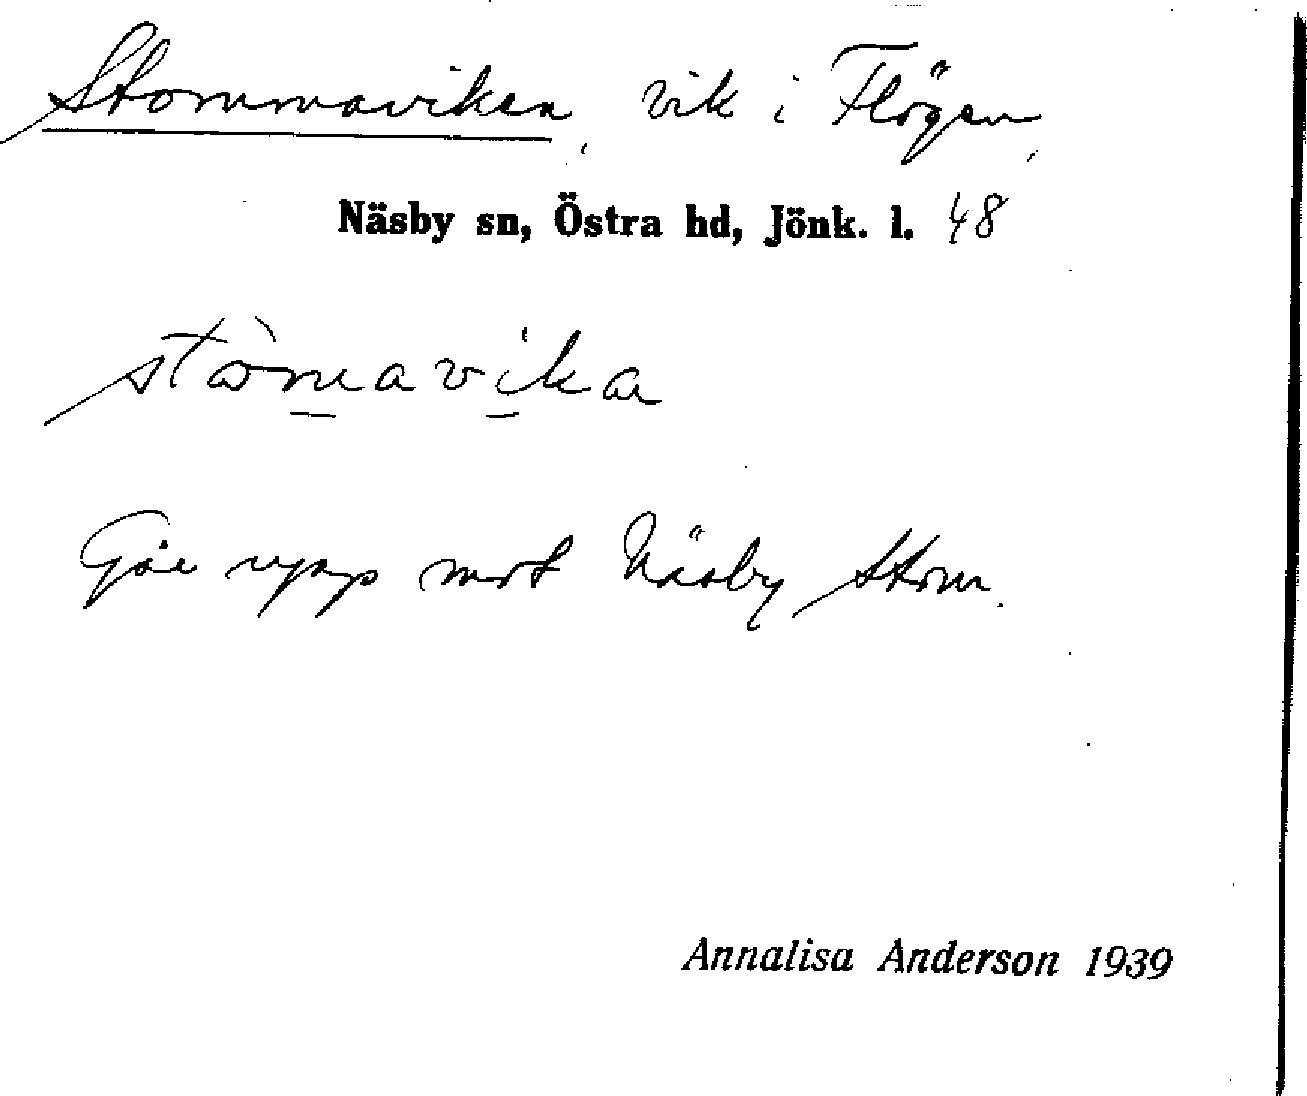 Stommaviken, vik i Flögen,
Näsby sn, Östra hd, Jönk. l. 48
stòmavika
Går upp mot Näsby Stom.
Annalisa Anderson 1939